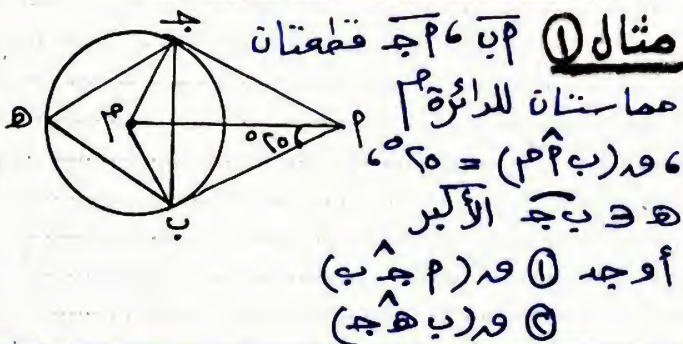 مثال ① أب ، أجـ قطعتان
مماستان للدائرة م
، ق(ب أ م) = ٢٥° ،
هـ ∈ ب جـ الأكبر
أوجد ① ق(أ جـ ب)
② ق(ب هـ جـ)
جـ
هـ
م
٢٥°
أ
ب